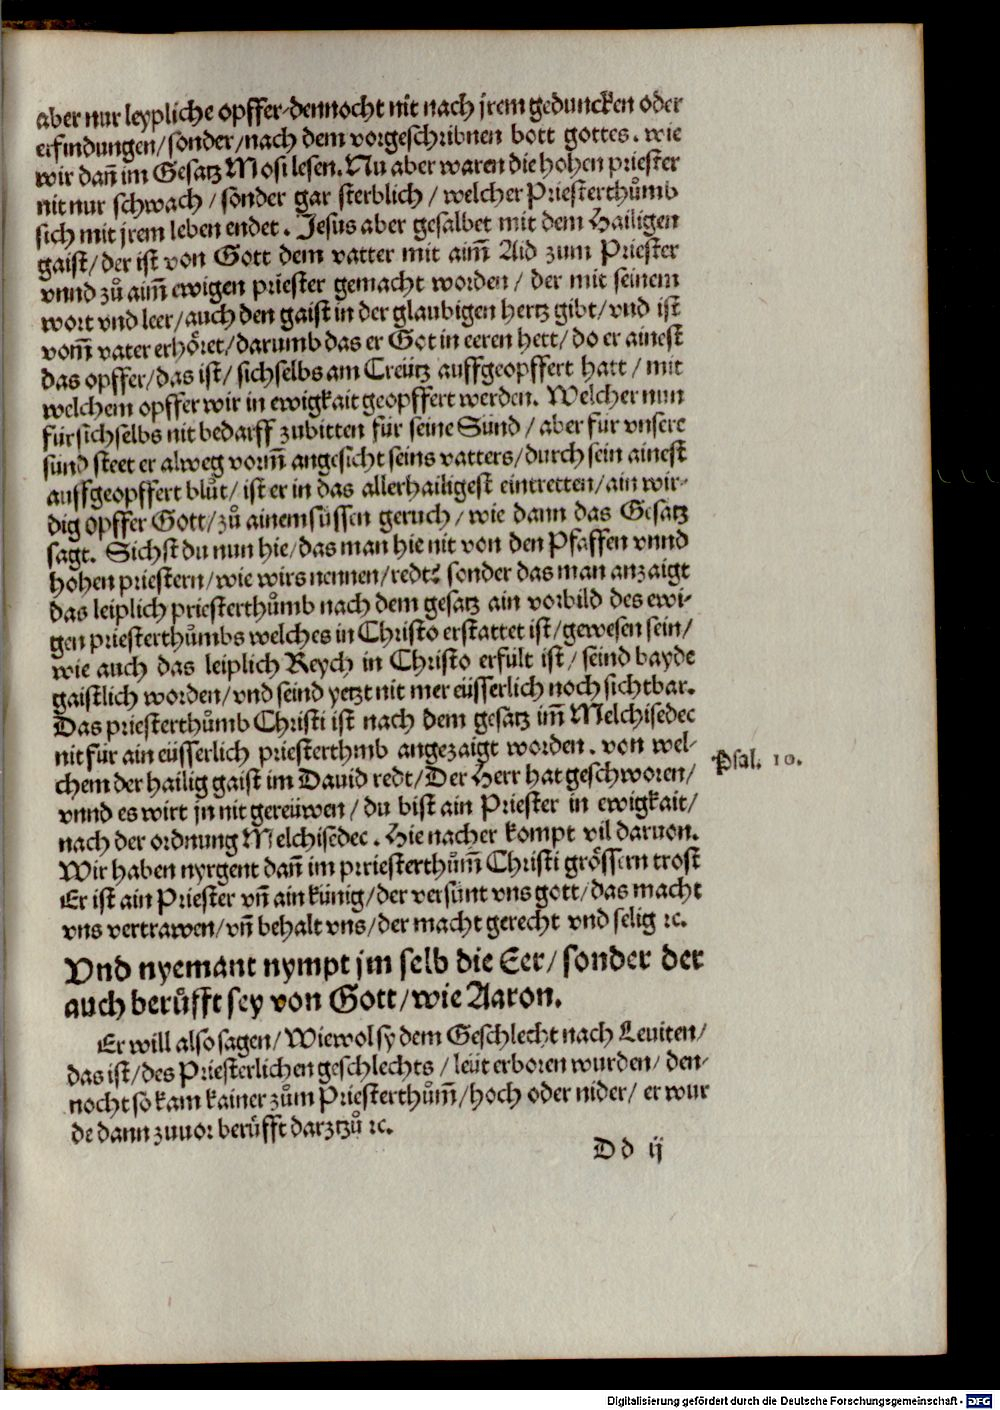 aber nur leypliche opffer/dennocht nit nach jrem geduncken oder
erfindungen/sonder/nach dem vorgeschribnen bott gottes. wie
wir dañ im Gesatz Mosi lesen. Nu aber waren die hohen priester
nit nur schwach/sonder gar sterblich/welcher Priesterthůmb
sich mit jrem leben endet. Jesus aber gesalbet mit dem Hailigen
gaist/der ist von Gott dem vatter mit aim̃ Aid zum Priester
vnnd zů aim̃ ewigen priester gemacht worden/der mit seinem
wort vnd leer/auch den gaist in der glaubigen hertz gibt/vnd ist
vom̃ vater erhöret/darumb das er Got in eeren hett/do er ainest
das opffer/das ist/sich selbs am Creütz auffgeopffert hatt/mit
welchem opffer wir in ewigkait geopffert werden. Welcher nun
für sich selbs nit bedarff zubitten für seine Sünd/aber für vnsere
sünd steet er alweg vorm̃ angesicht seins vatters/durch sein ainest
auffgeopffert blůt/ist er in das allerhailigest eintretten/ain wir-
dig opffer Gott/zů ainem süssen geruch/wie dann das Gesatz
sagt. Sichst du nun hie/das man hie nit von den Pfaffen vnnd
hohen priestern/wie wirs nennen/redt? sonder das man anzaigt
das leiplich priesterthůmb nach dem gesatz ain vorbild des ewi-
gen priesterthůmbs welches in Christo erstattet ist/gewesen sein/
wie auch das leiplich Reych in Christo erfült ist/seind bayde
gaistlich worden/vnd seind yetzt nit mer eüsserlich noch sichtbar.
Das priesterthůmb Christi ist nach dem gesatz im̃ Melchisedec
nit für ain eüsserlich priesterthmb angezaigt worden. von wel-
chem der hailig gaist im Dauid redt/Der Herr hat geschworen/
vnnd es wirt jn nit gereüwen/du bist ain Priester in ewigkait/
nach der ordnung Melchisedec. Hie nacher kompt vil daruon.
Wir haben nyrgent dañ im prriesterthům̃ Christi grössern trost
Er ist ain Priester vñ ain künig/der versünt vns gott/das macht
vns vertrawen/vñ behalt vns/der macht gerecht vnd selig ꝛc.
Vnd nyemant nympt jm selb die Eer/sonder der
auch berüfft sey von Gott/wie Aaron.
Er will also sagen/Wiewol sy dem Geschlecht nach Leuiten/
das ist/des Priesterlichen geschlechts/leüt erboren wurden/den-
nocht so kam kainer zům Priesterthům̃/hoch oder nider/er wur
de dann zuuor berüfft darztzů ꝛc.
Dd ij
Psal. 10.
Digitalisierung gefördert durch die Deutsche Forschungsgemeinschaft - DFG